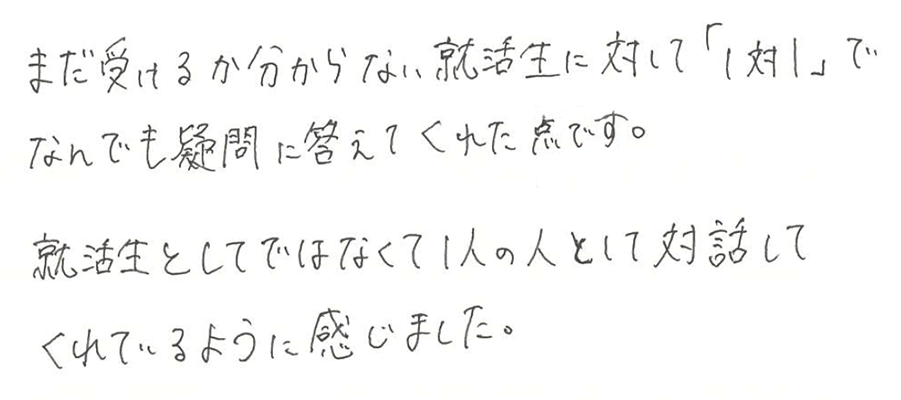 まだ受けるか分からない就活生に対して「1対1」で
なんでも疑問に答えてくれた点です。
就活生としてではなくて1人の人として対話して
くれているように感じました。